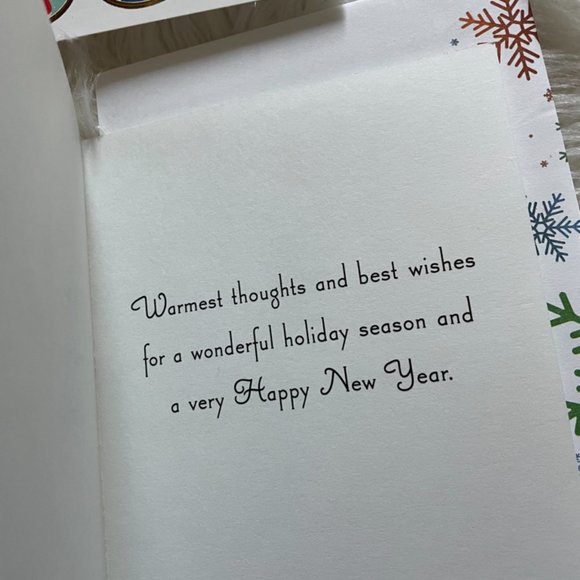 Warmest thoughts and best wishes
for a wonderful holiday season and
a very Happy New Year.